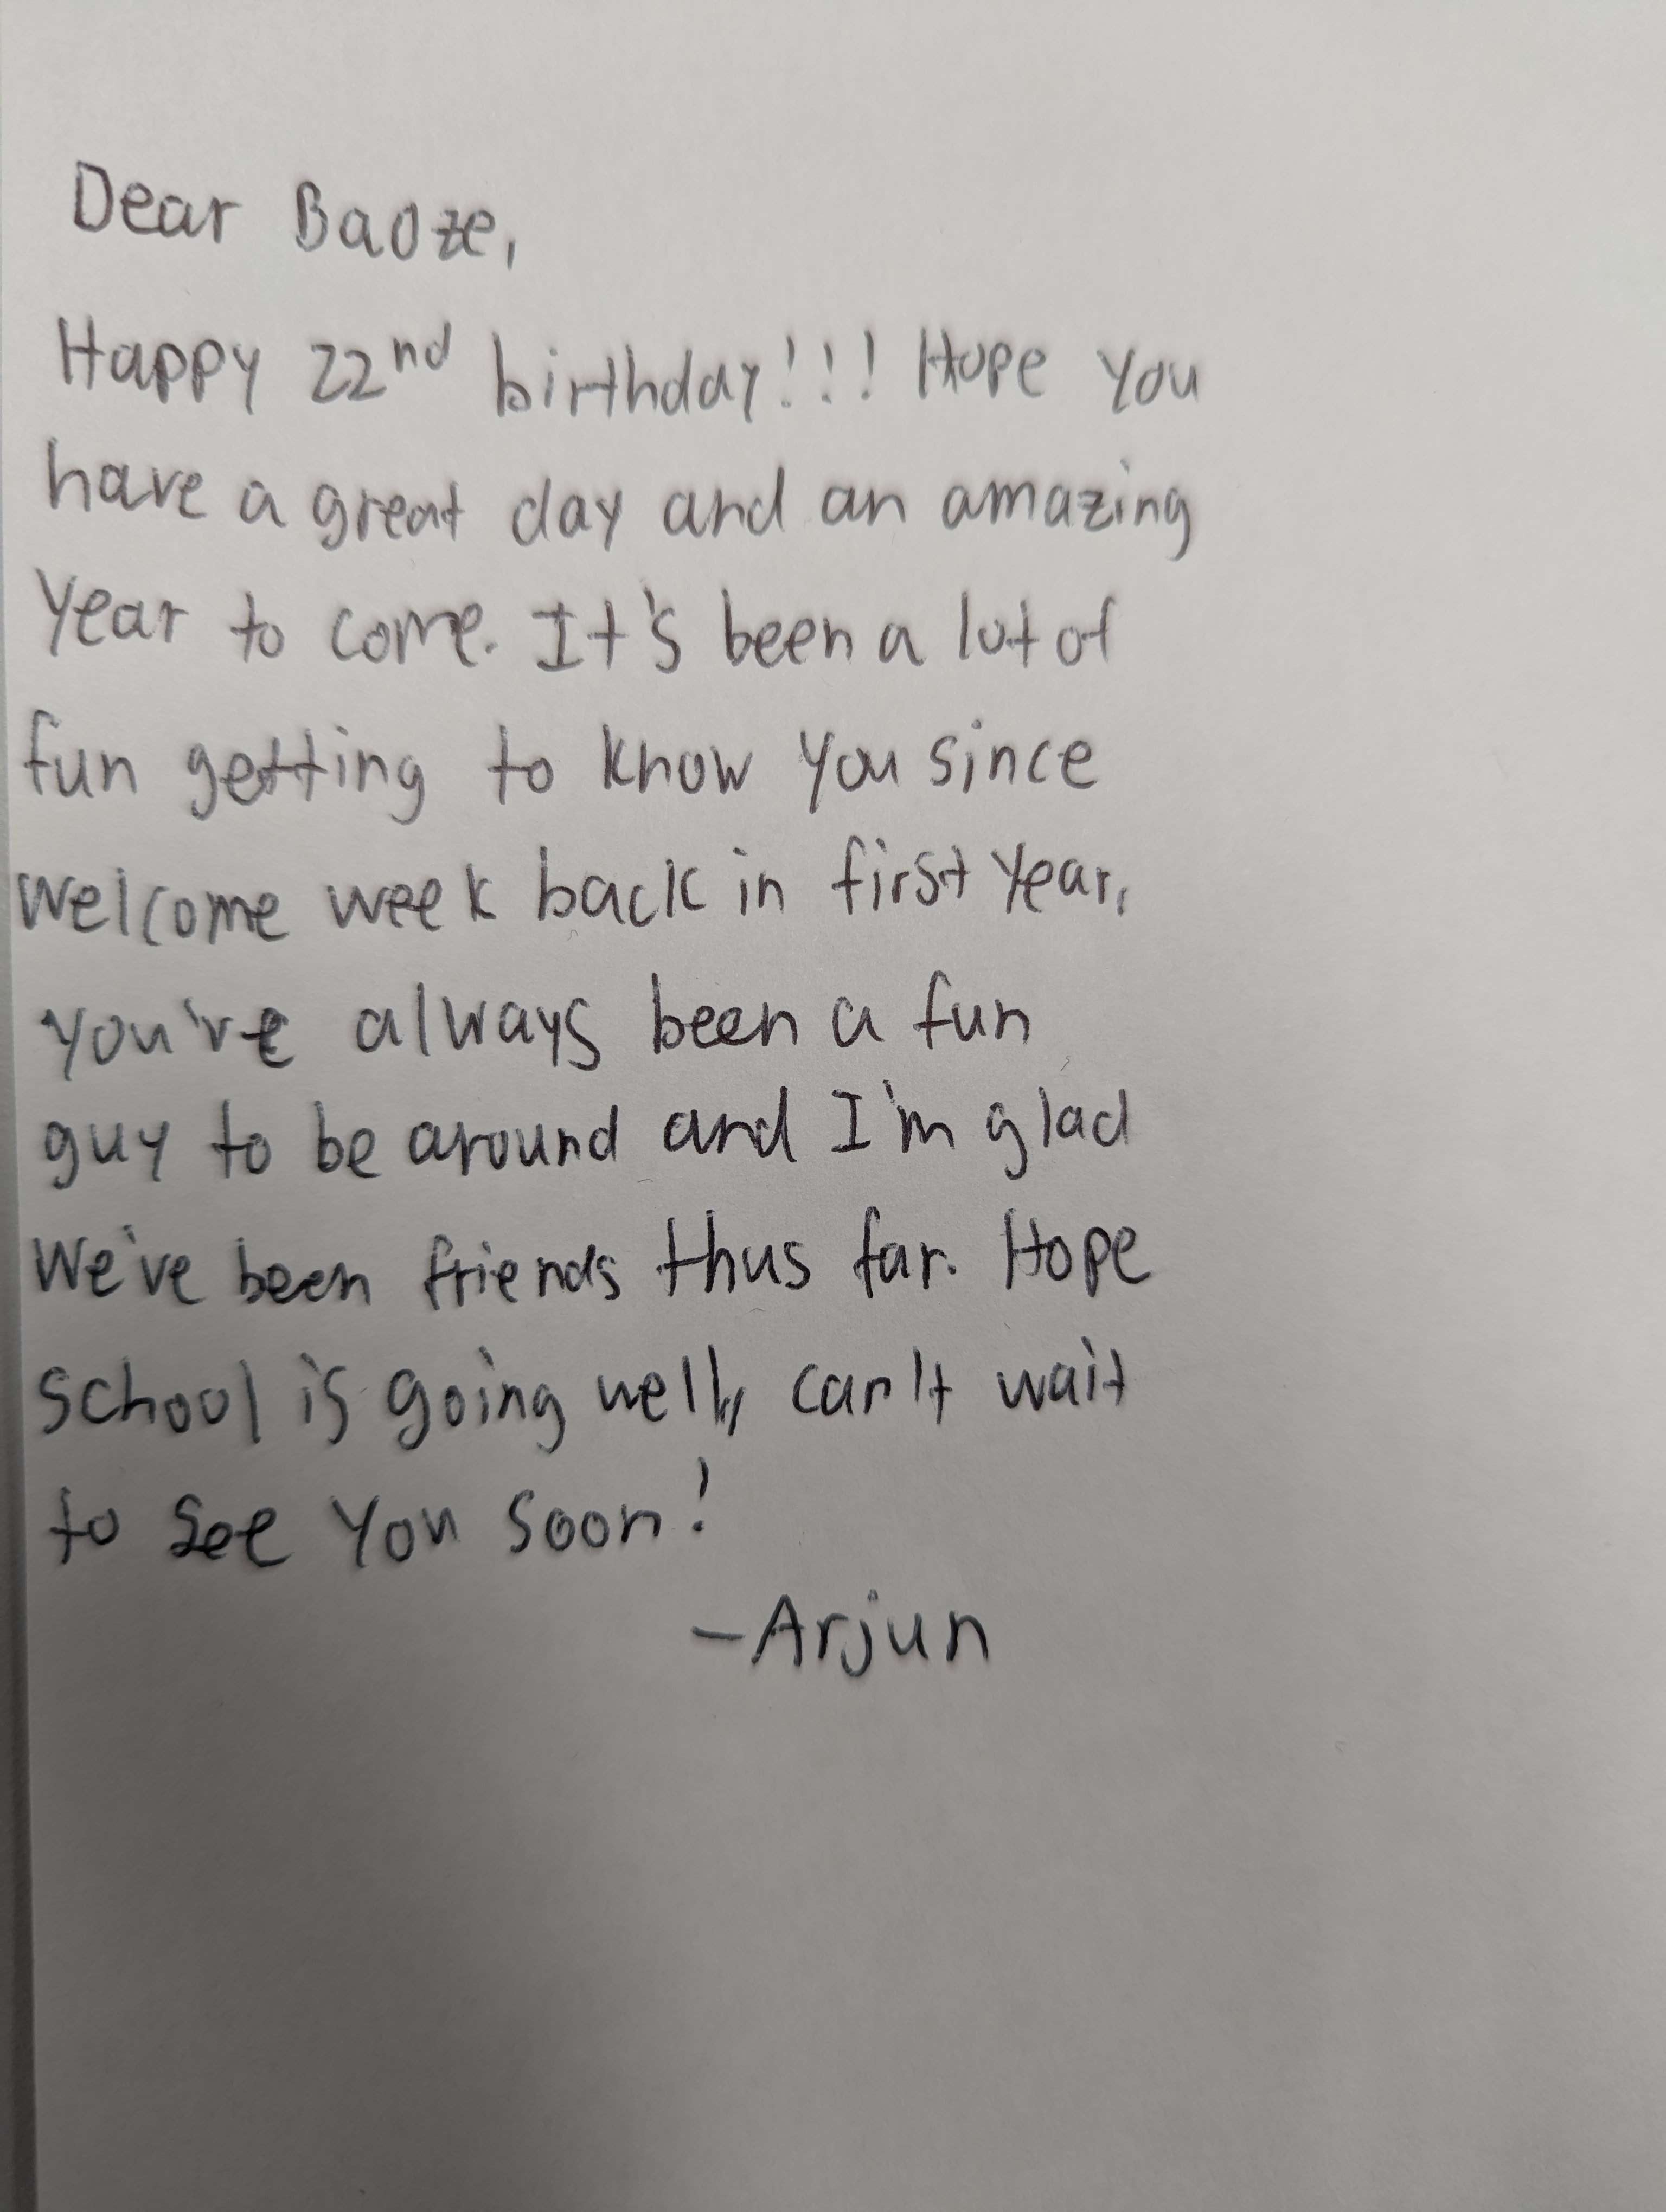 Dear Baoze,
Happy 22nd birthday!!! Hope you
have a great day and an amazing
year to come. It's been a lot of
fun getting to know you since
welcome week back in first year,
you've always been a fun
guy to be around and I'm glad
We've been friends thus far. Hope
school is going well, can't wait
to see you soon!
-Arjun